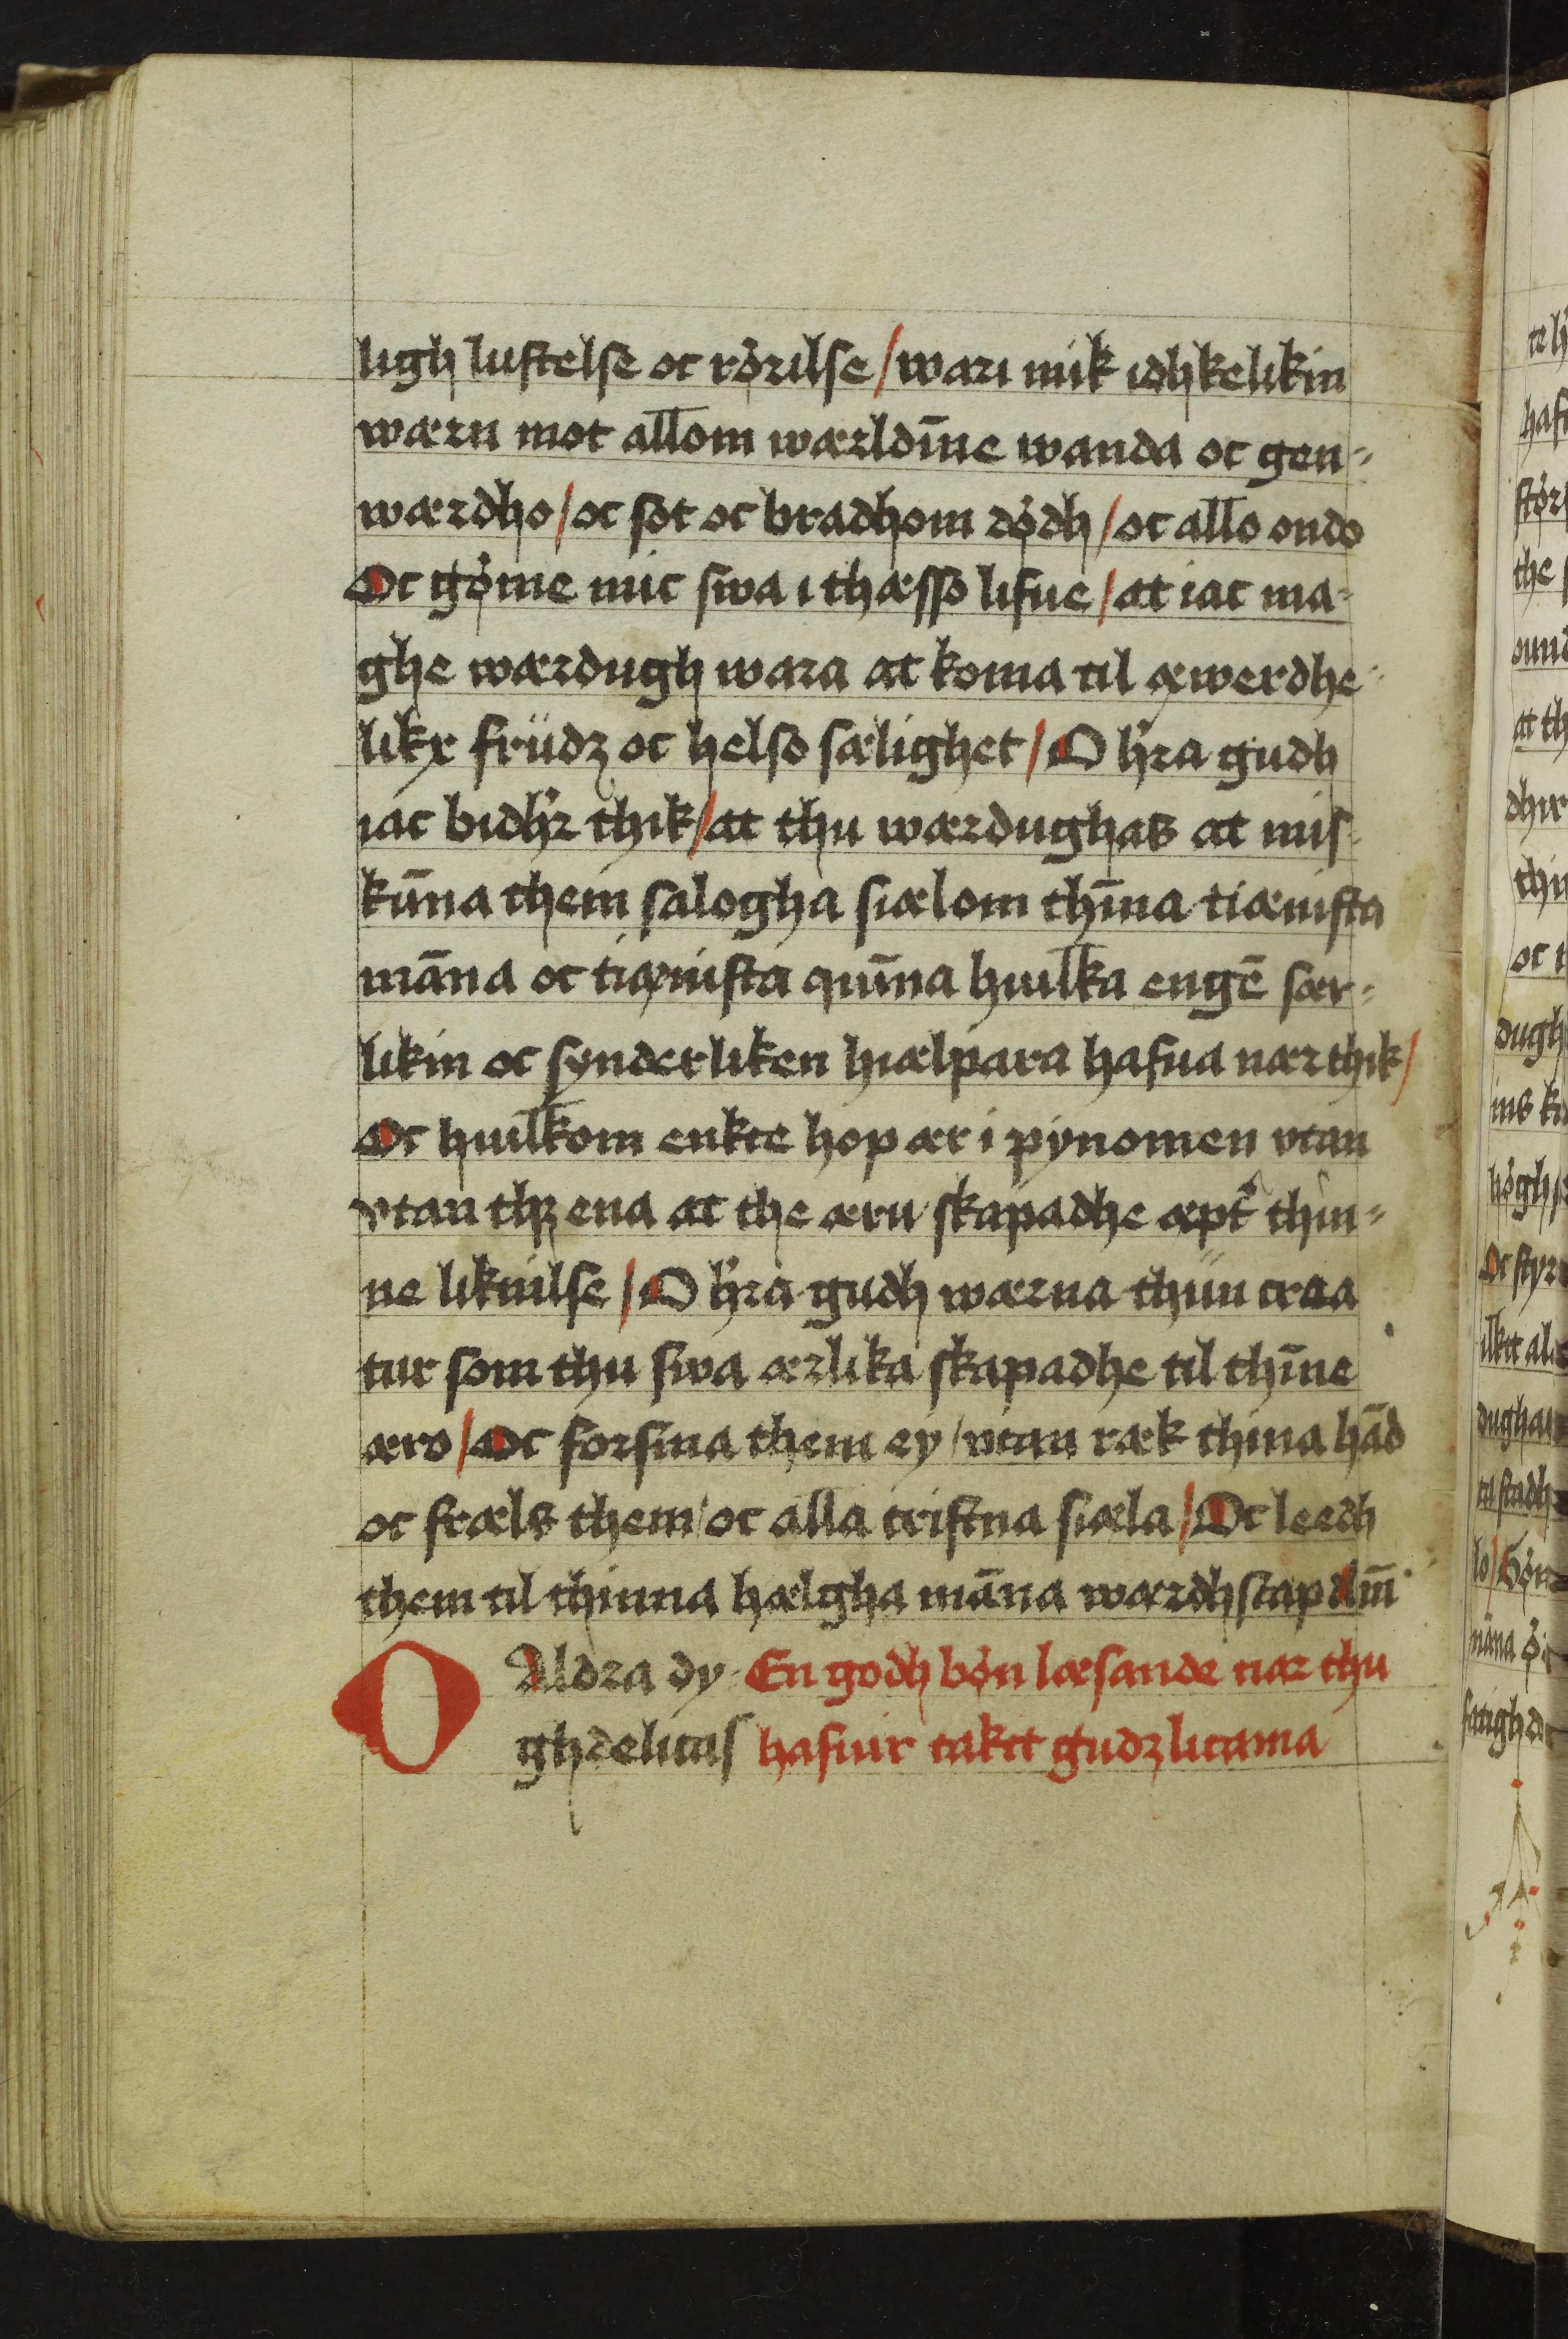 ligh lustelse oc rörilse / wari mik idhkelikin
wærn mot allom wærldīne wanda oc gen-
wærdho / oc sot oc bradhom dödh / oc allo ondo
Oc göme mic swa i thæsso lifue / at iac ma-
ghe wærdugh wara at koma til æwerdhe-
likæ früdz oc helso sælighet / O h'ra gudh
iac bidh'r thik / at thu wærdughas at mis-
kūna them salogha siælom thīna tiænista
māna oc tiænista quīna huilka engē sær-
likin oc synderliken hiælpara hafua nær thik /
Oc huilkom enkte hop ær i pynomen vtan
vtan thz ena at the æru skapadhe æpt' thin-
ne liknilse / O h'ra gudh wærna thiin craa
tur som thu swa ærlika skapadhe til thīne
æro / Oc forsma them ey / vtan ræk thina hād
oc fræls them / oc alla cristna siæla / Oc leedh
them til thinna hælgha māna wærdhscap Am̄
O Aldra dy- En godh bön læsande nar thu
ghdelicas hafuir taktt gudz licama
tt al